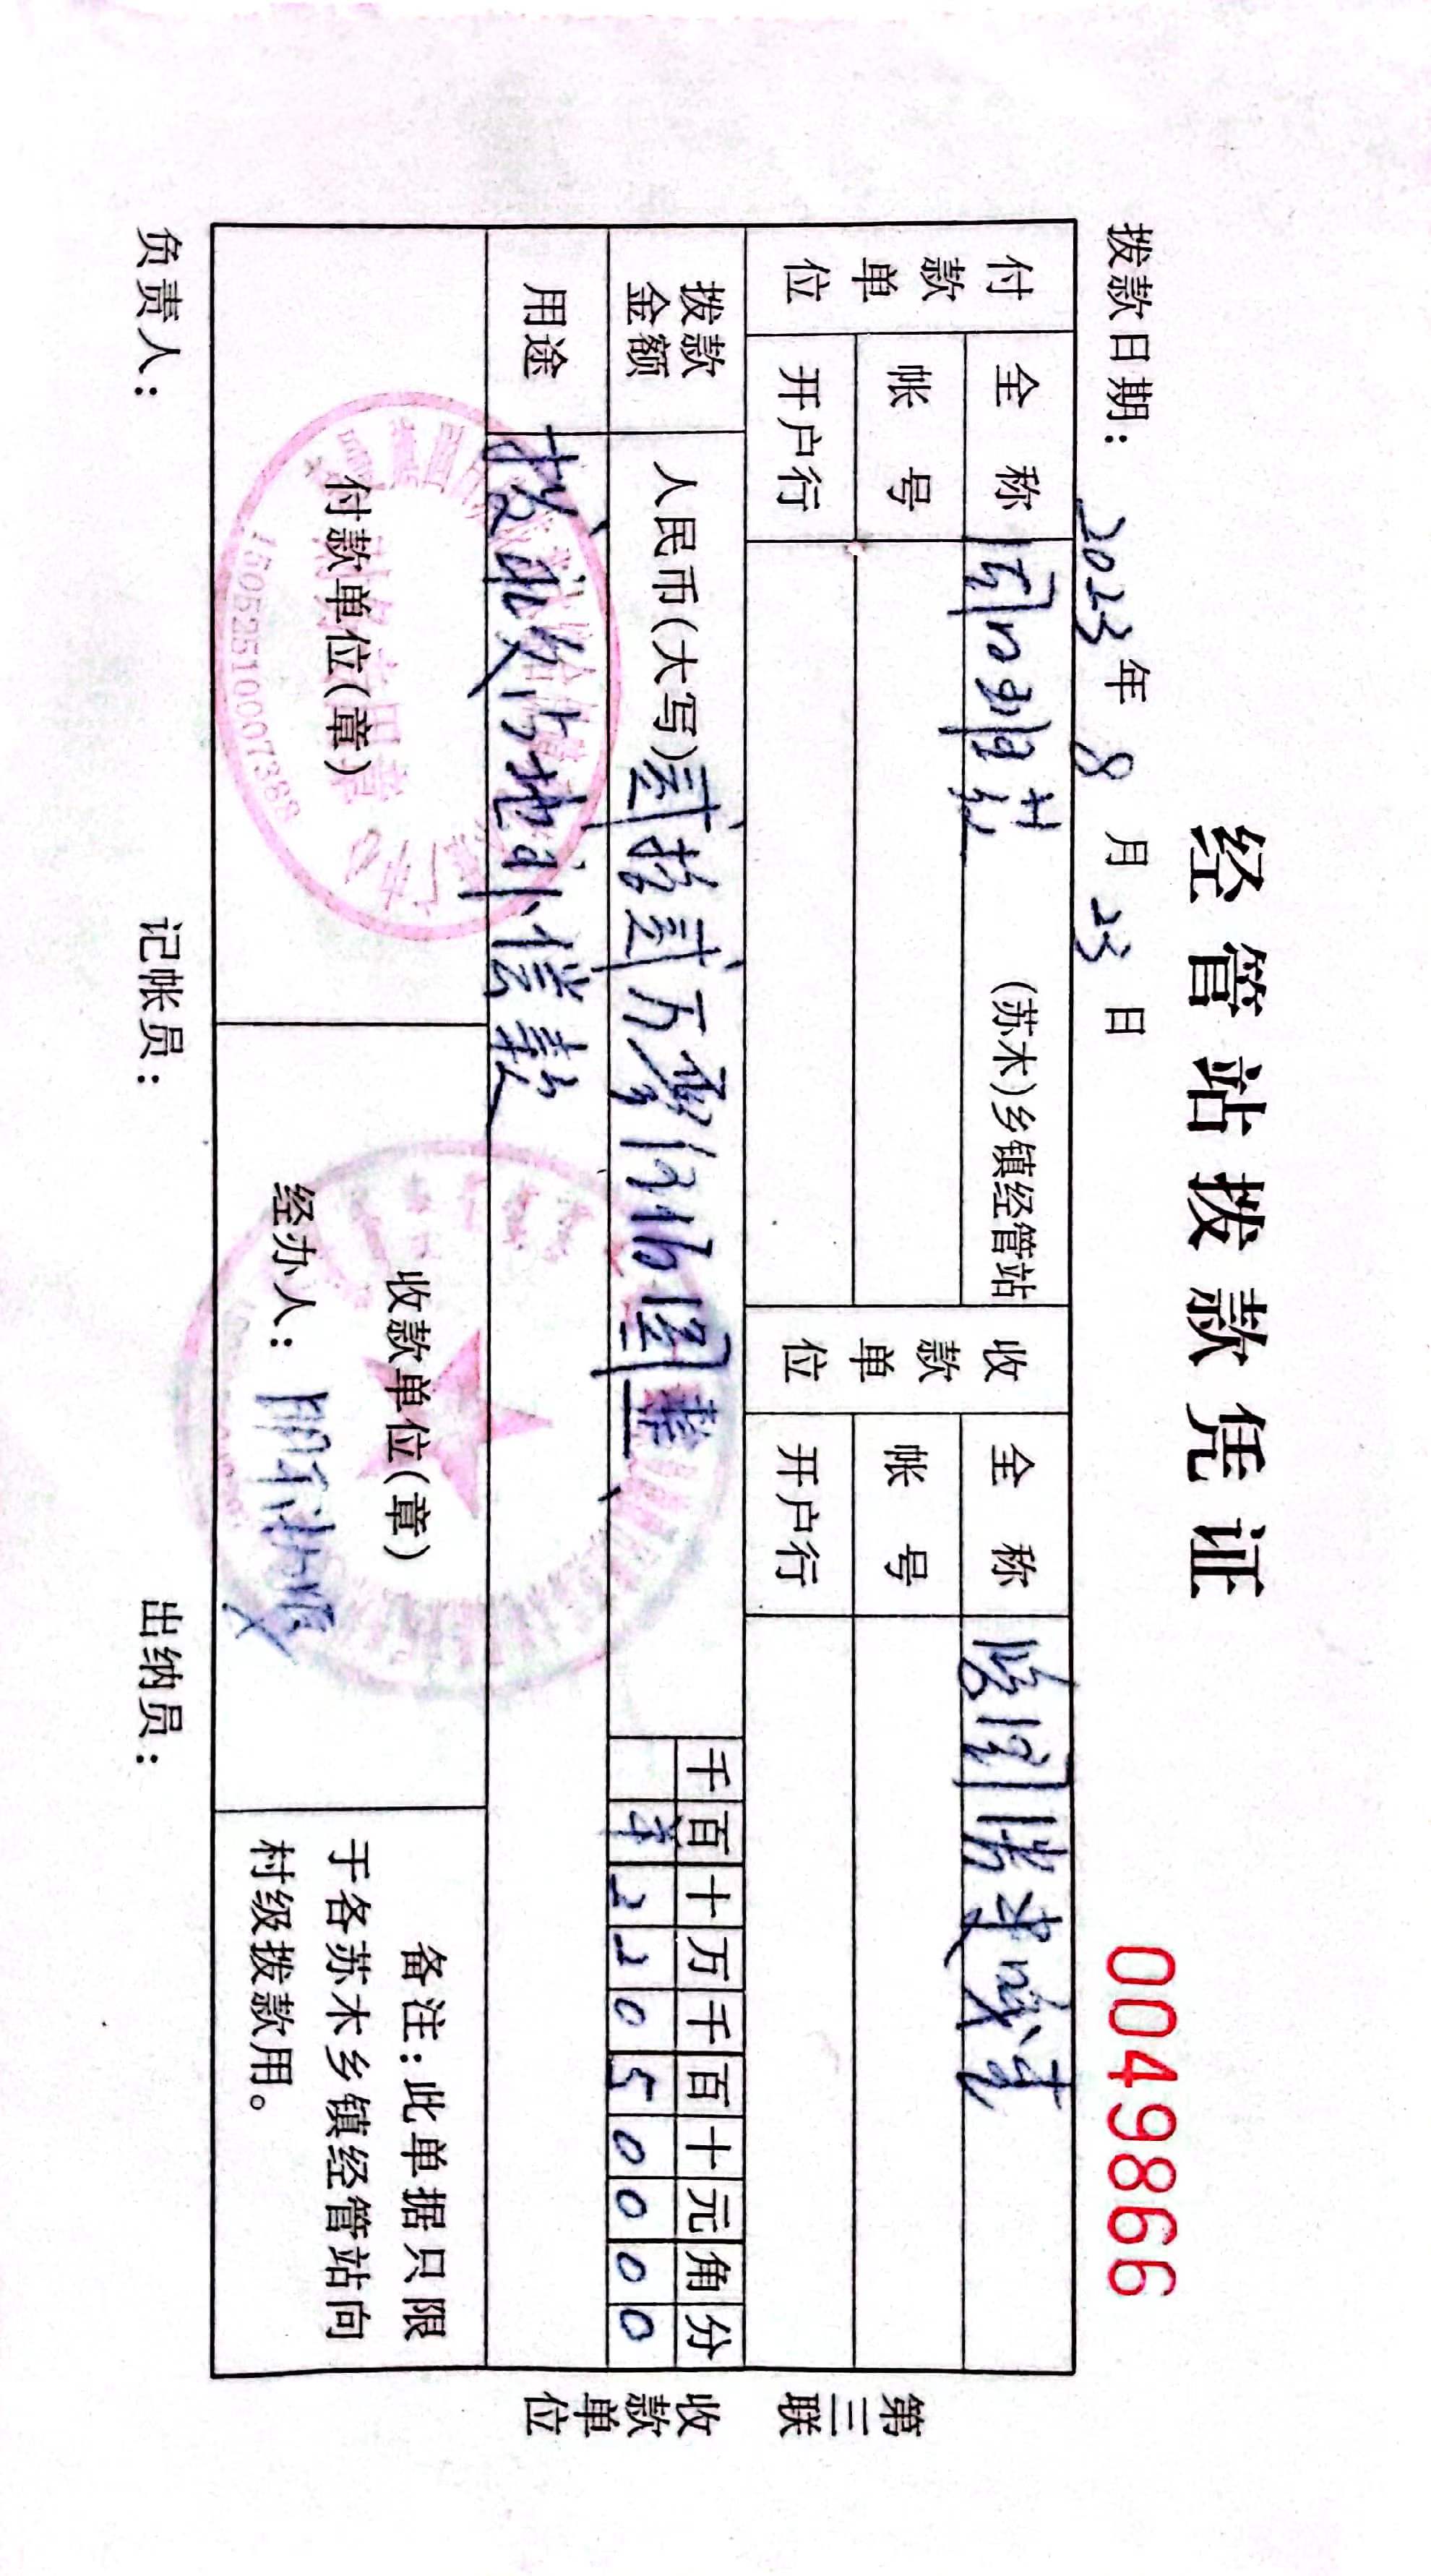 经管站拨款凭证
拨款日期： 2023 年 8 月 23 日
0049866
付款单位 全称 (苏木)乡镇经管站
收款单位 全称
帐号
帐号
开户行
开户行
拨款金额 人民币(大写) 贰拾贰万零伍佰圆整
千百十万千百十元角分
¥ 2 2 0 5 0 0 0 0
用途 拨 占地补偿款
付款单位(章)
15052510007388
收款单位(章)
经办人：
备注：此单据只限
于各苏木乡镇经管站向
村级拨款用。
第三联 收款单位
负责人： 记帐员： 出纳员：